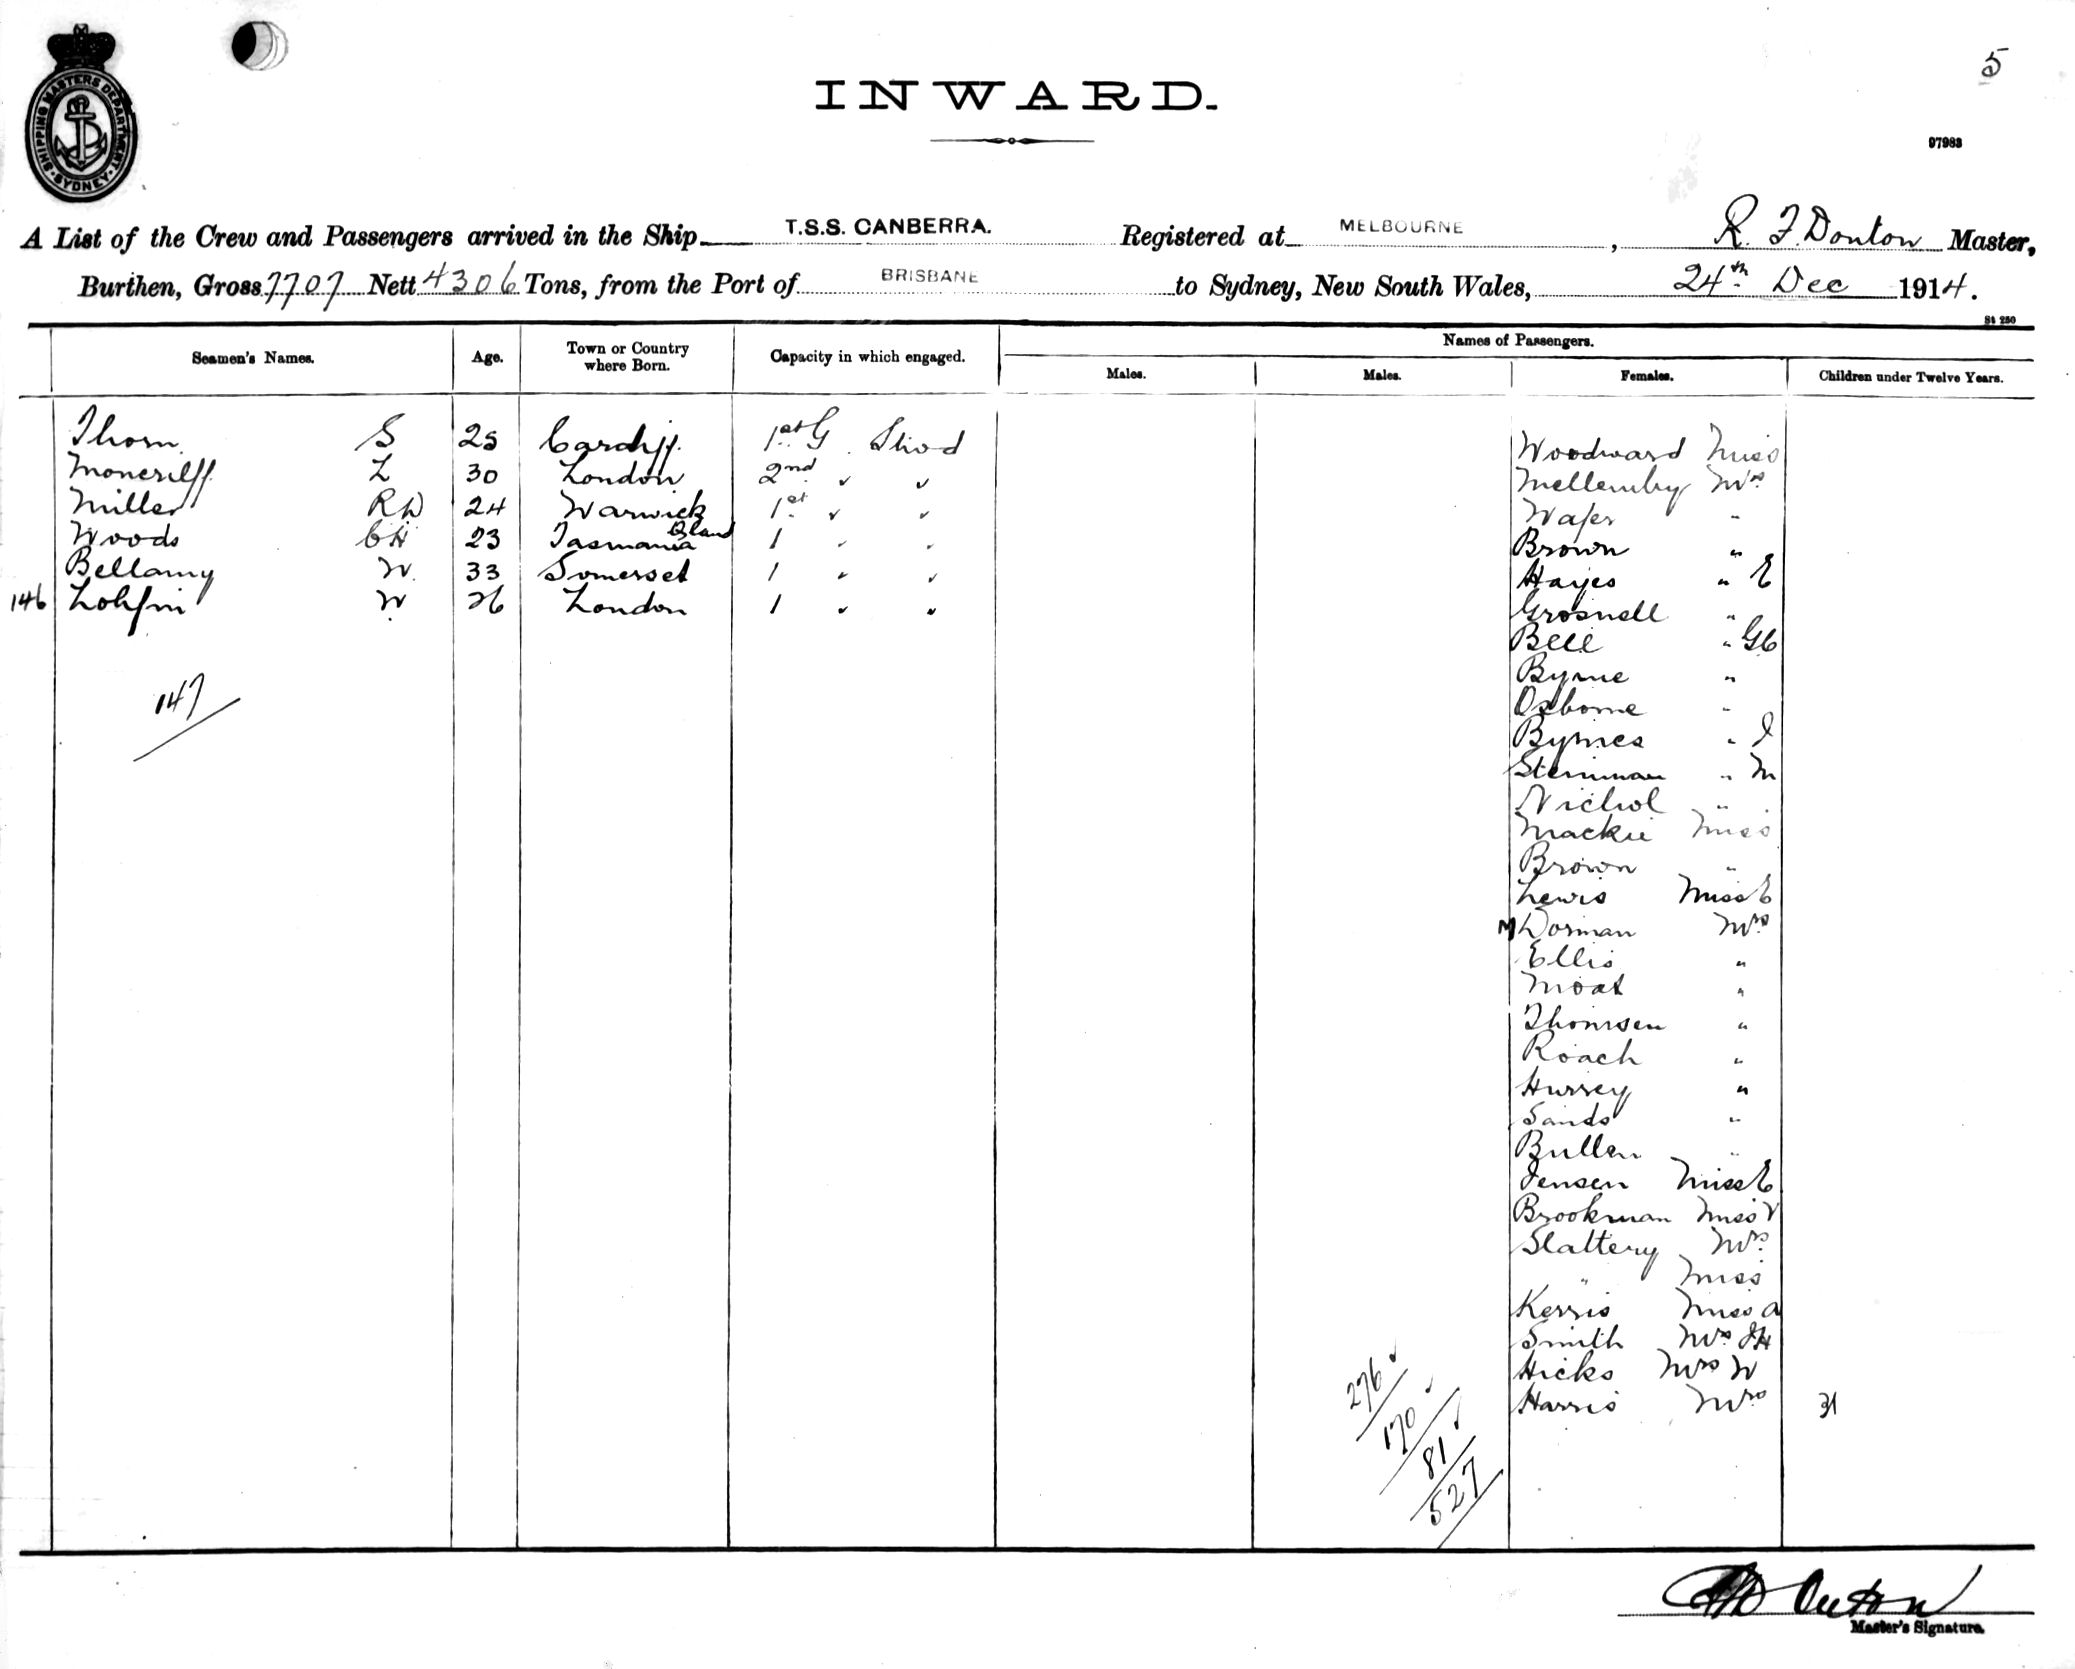 5
SHIPPING MASTERS DEPARTMENT
SYDNEY
INWARD.
97983
A List of the Crew and Passengers arrived in the Ship T.S.S. CANBERRA. Registered at MELBOURNE, R. F. Donton Master,
Burthen, Gross 7707 Nett 4306 Tons, from the Port of BRISBANE to Sydney, New South Wales, 24th Dec 1914.
St 250
Seamen's Names. Age. Town or Country where Born. Capacity in which engaged. Names of Passengers.
Males. Males. Females. Children under Twelve Years.
Thorn S 25 Cardiff 1st G Stwd
Moncrieff L 30 London 2nd " "
Miller RW 24 Warwick 1st " "
Qland
Woods CH 23 Tasmania 1 " "
Bellamy W. 33 Somerset 1 " "
146 W 26 London 1 " "
147
Woodward Miss
Mellemby Mrs
"
Brown "
Hayes " E
"
Bell " GC
Byrne "
Osborne "
Byrnes " J
" M
Nichol "
Mackie Miss
Brown "
Lewis Miss E
Dorman Mrs
Ellis "
Moat "
Thomsen "
Roach "
Hurrey "
Sands "
Bullen "
Jensen Miss E
Brookman Miss V
Slattery Mrs
" Miss
Kerris Miss A
Smith Mrs JH
Hicks Mrs W
Harris Mrs 31
276
170
81
527
Master's Signature.